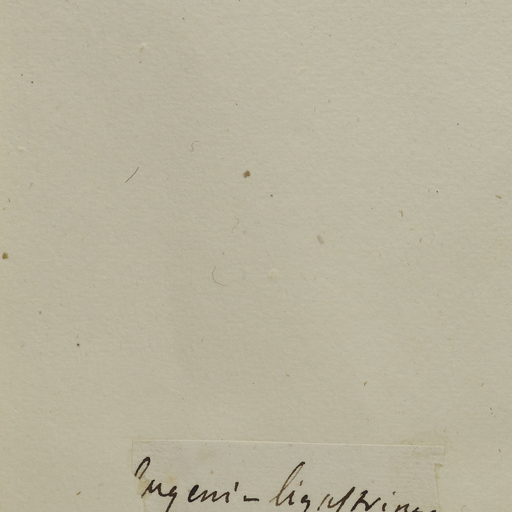 Eugenia ligustrina